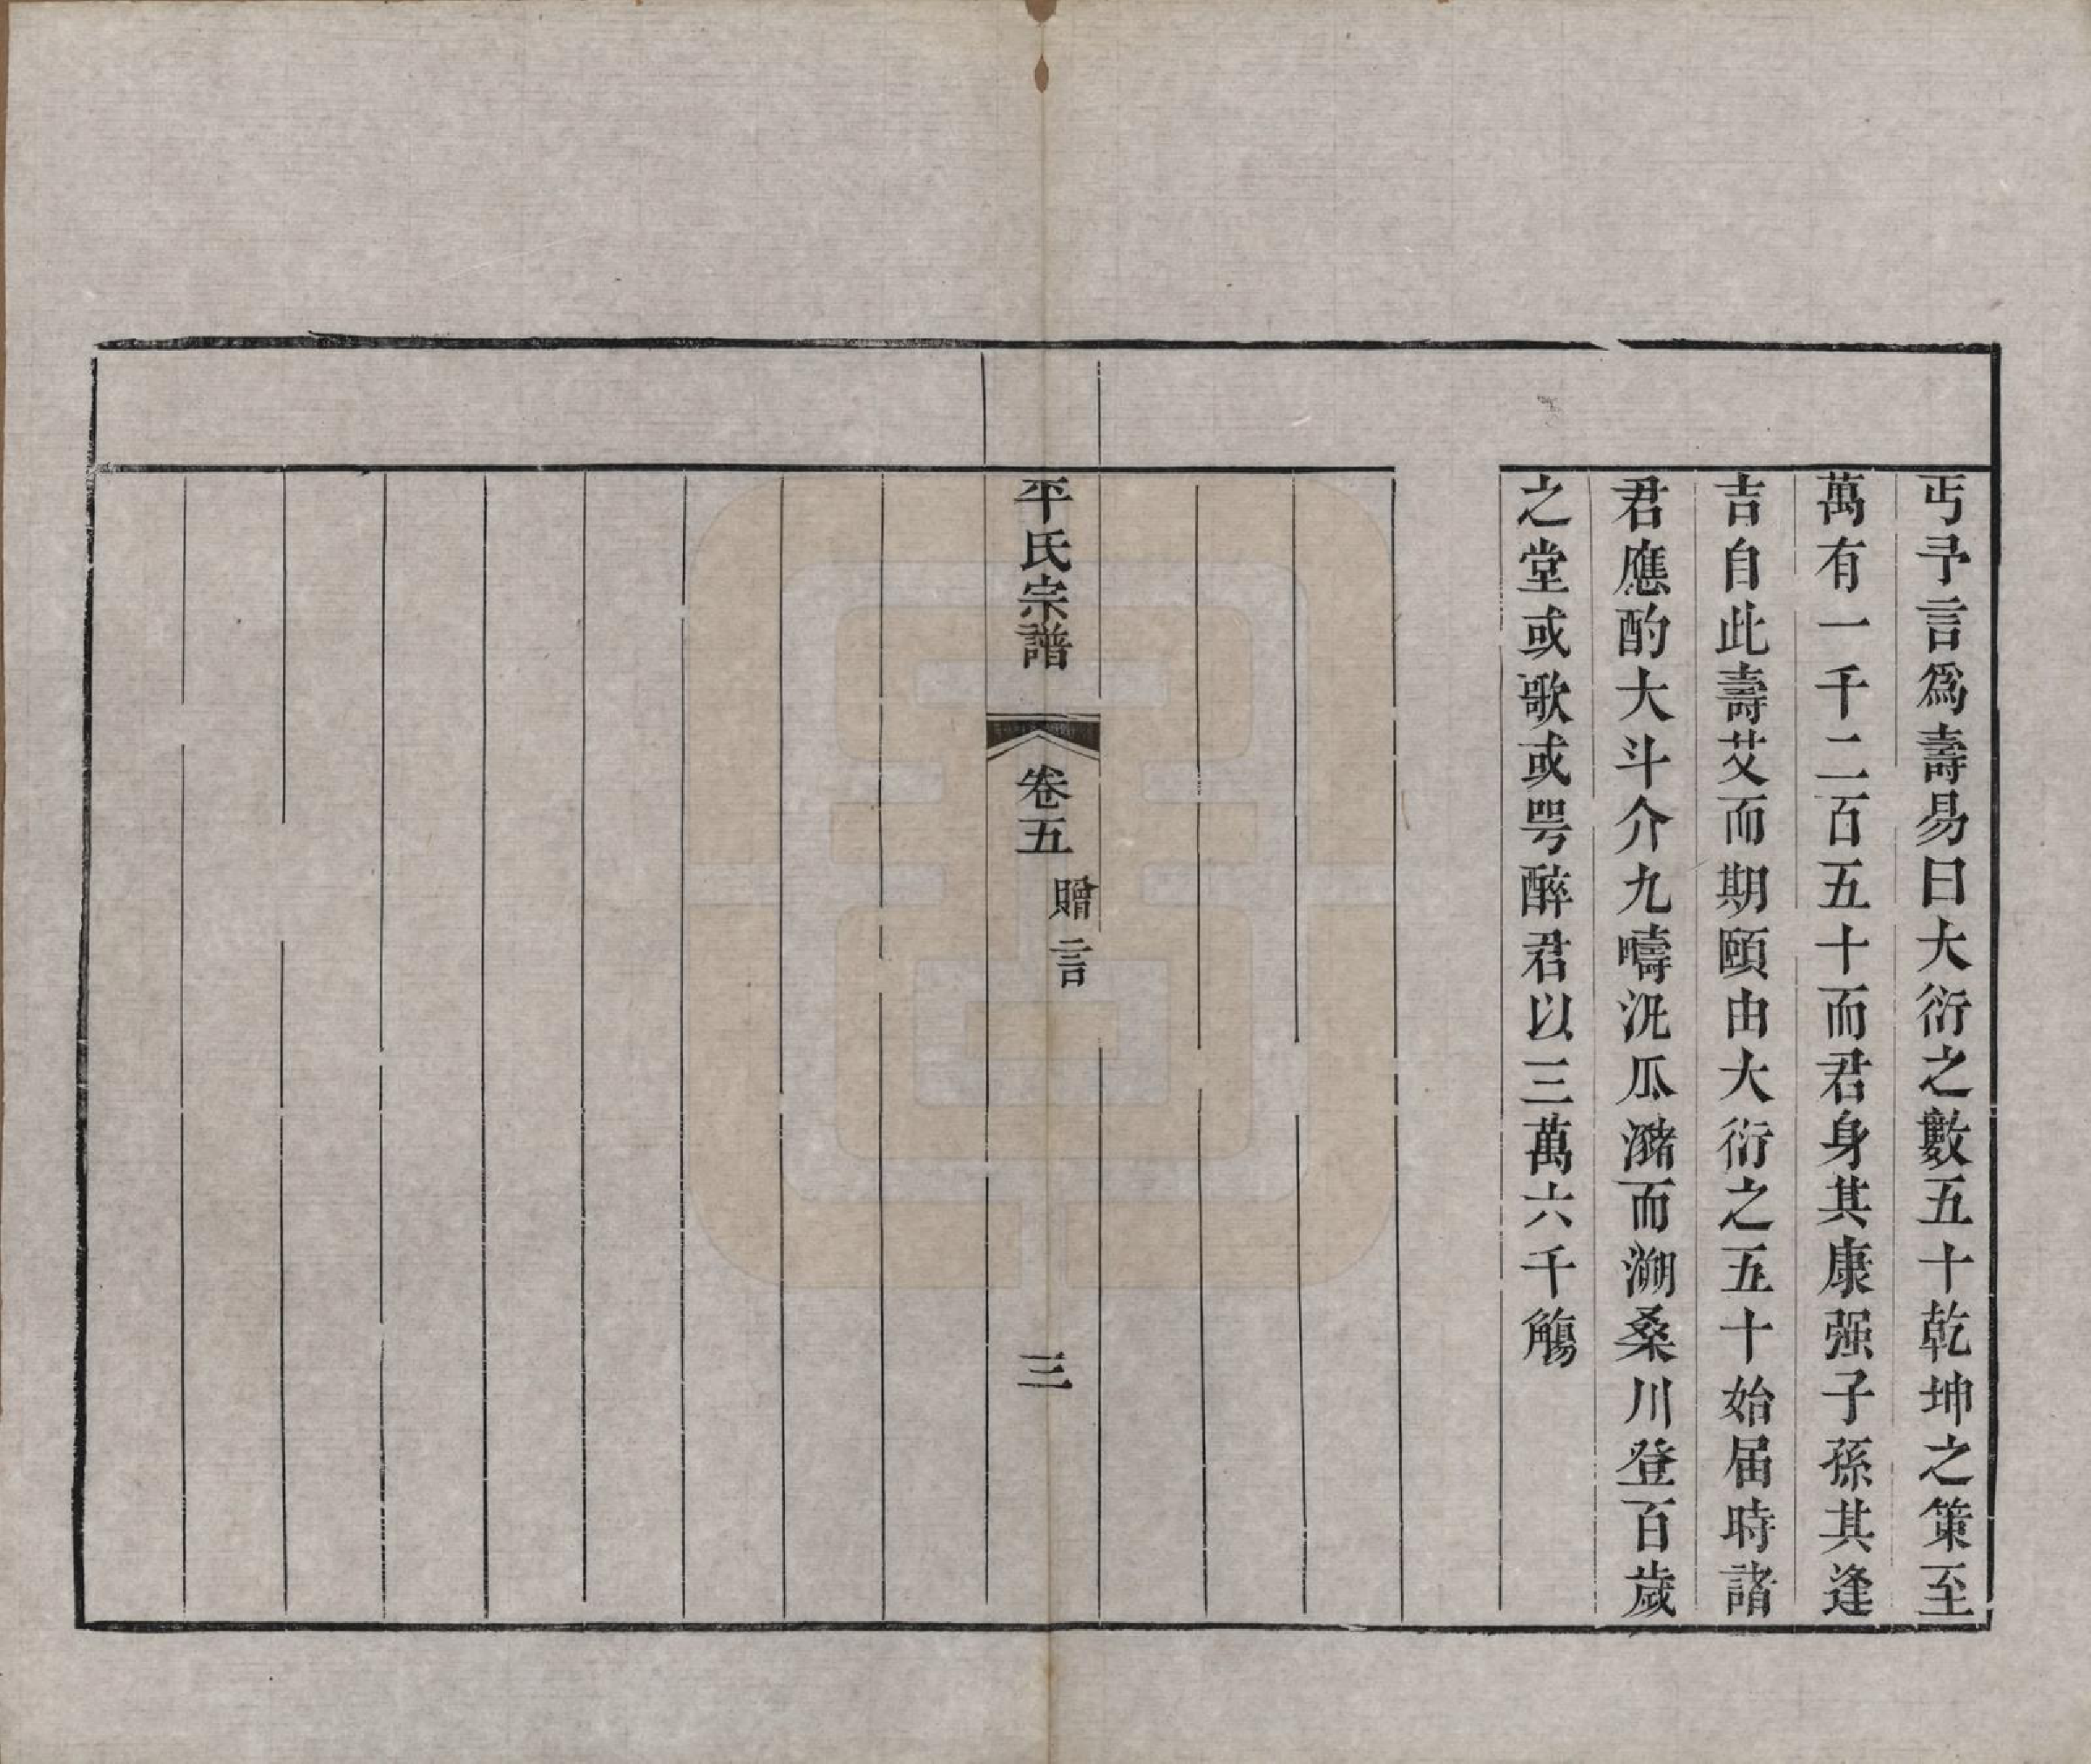 丐予言爲壽易曰大衍之數五十乾坤之策至
萬有一千二百五十而君身其康强子孫其逢
吉自此壽艾而期頤由大衍之五十始届時諸
君應酌大斗介九疇汎瓜瀦而溯桑川登百歲
之堂或歌或咢醉君以三萬六千觴
平氏宗譜
卷五
贈言
三